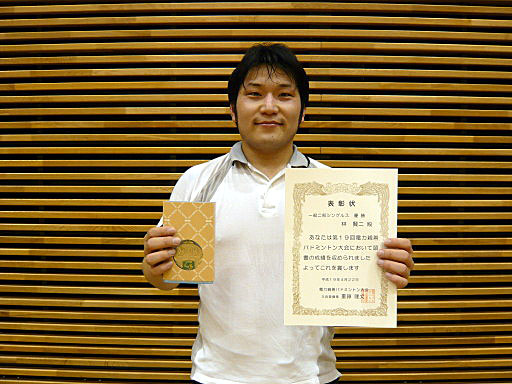 表彰状
一般二部シングルス 優勝
林 賢二 殿
あなたは第19回電力親善
バドミントン大会において頭
書の成績を収められました
よってこれを賞します
平成19年4月22日
電力親善バドミントン